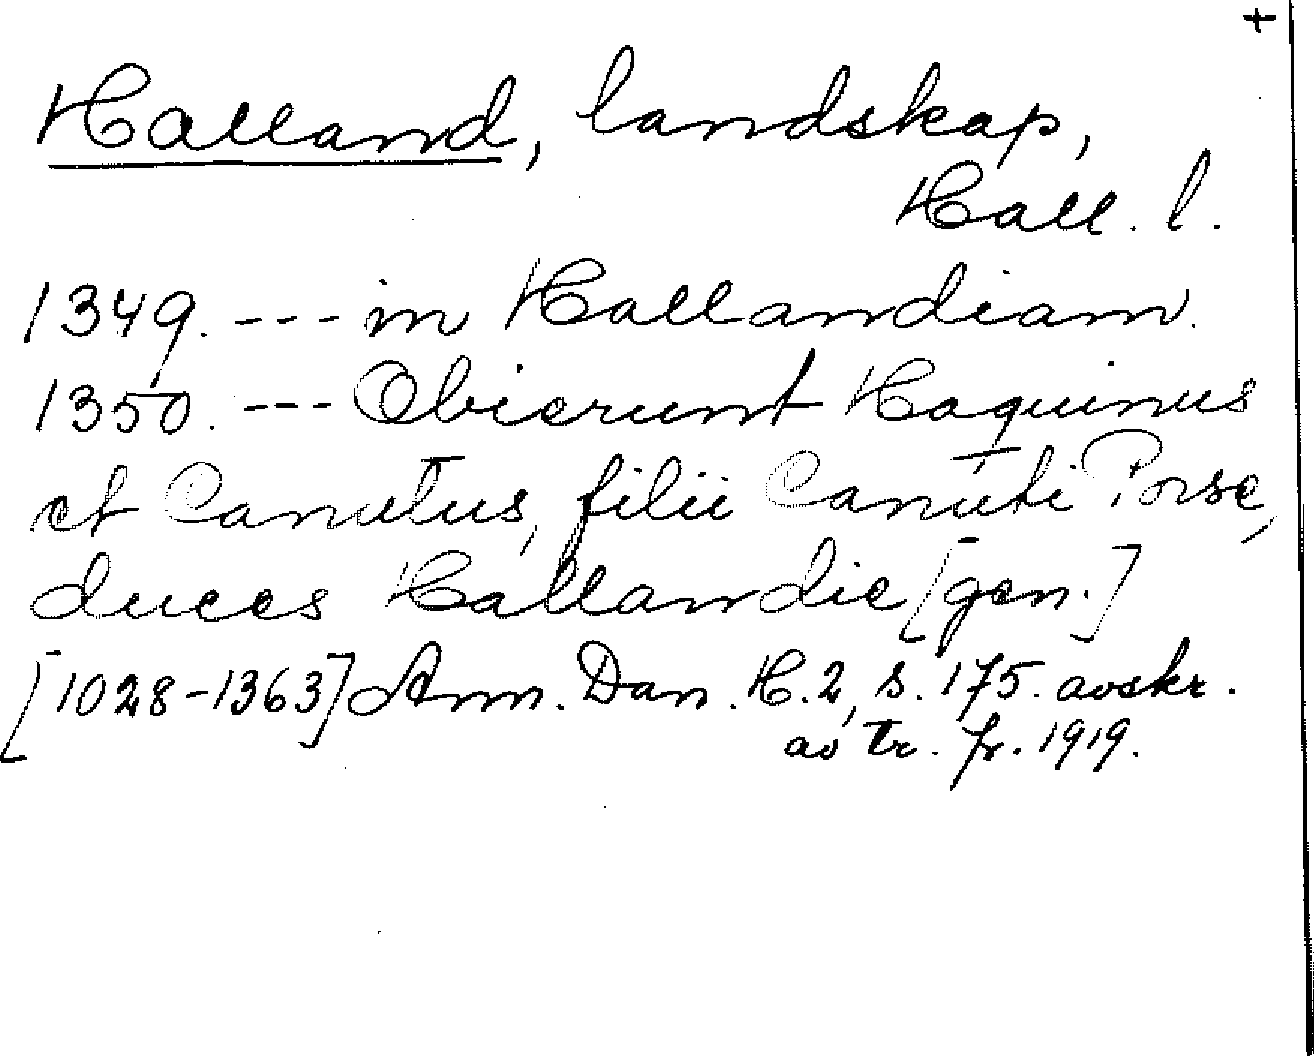 +
Halland, landskap,
Hall. l.
1349. --- in Hallandiam.
1350. --- Obierunt Haquinus
et Canutus, filii Canuti Porse,
duces Hallandie [gen.]
[1028-1363] Ann. Dan. H. 2, s. 175. avskr.
av tr. fr. 1919.